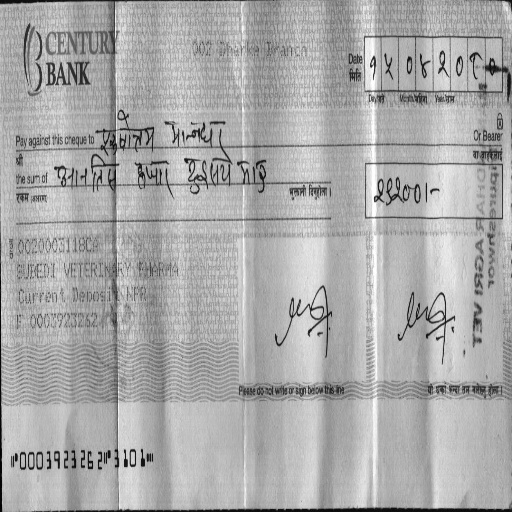 CENTURY
BANK
002 Dharke Branch
Date
मिति
१५ ०४ २०८
Day/गते Month/महिना Year/साल
Pay against this cheque to
Or Bearer
श्री
वा वाहकलाई
the sum of उनानतिस हजार दुईसय मात्र
रकम (अक्षरूपी)
भुक्तानी दिनुहोला ।
२९२००।-
0020003118CA
SUBEDI VETERINARY PHARMA
Current Deposit NPR
F 0003923262
Please do not write or sign below this line
⑈0003923262⑈3101⑈